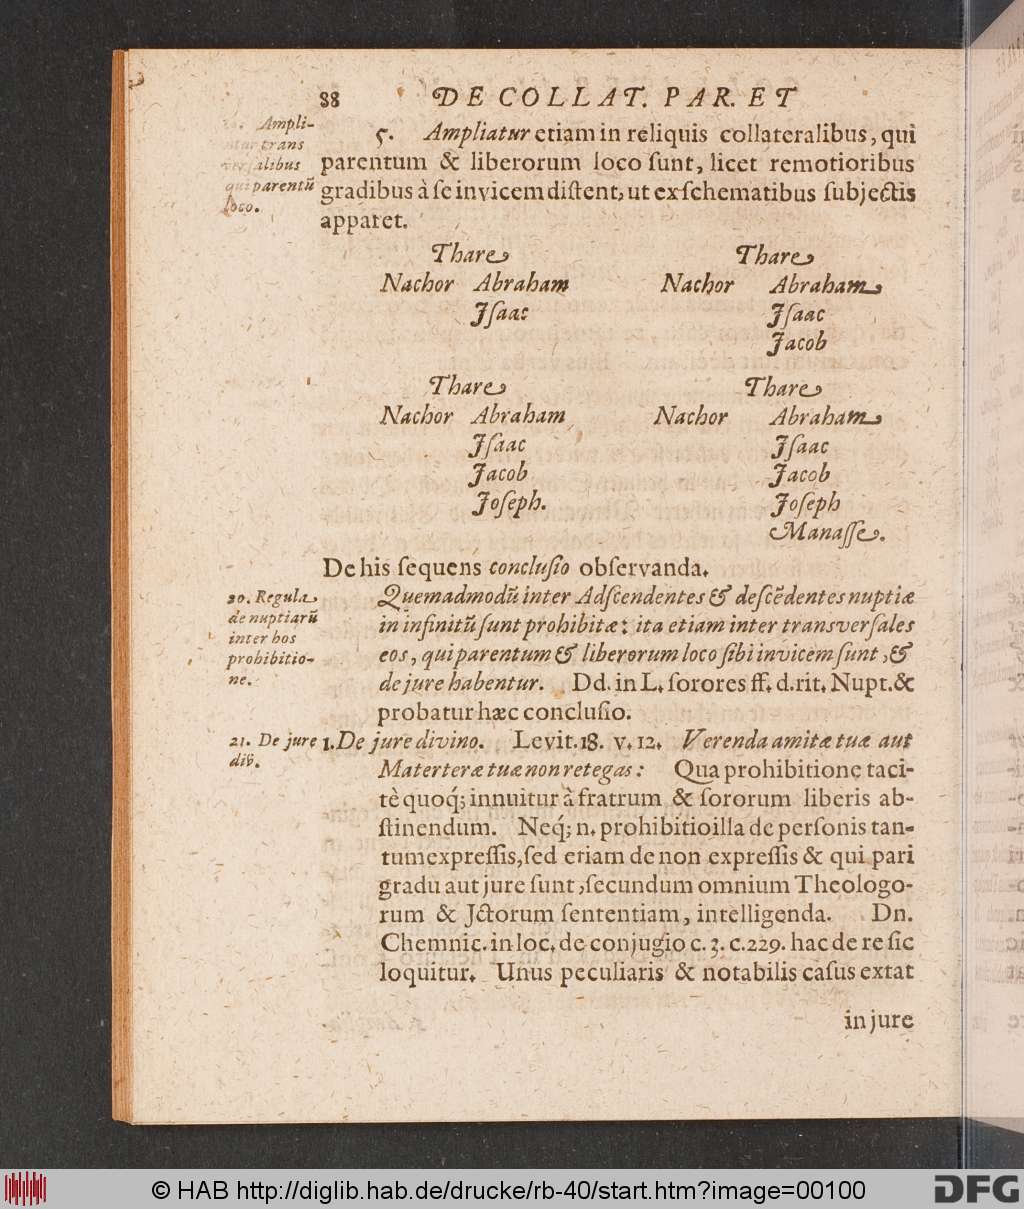 88 DE COLLAT. PAR. ET
Ampli-
trans
versalibus
qui parentū
loco.
5. Ampliatur etiam in reliquis collateralibus, qui
parentum & liberorum loco ſunt, licet remotioribus
gradibus à ſe invicem diſtent, ut ex ſchematibus ſubjectis
apparet.
Thare Thare
Nachor Abraham Nachor Abraham
Iſaac Iſaac
Jacob
Thare Thare
Nachor Abraham Nachor Abraham
Iſaac Iſaac
Jacob Jacob
Joſeph. Joſeph
Manaſſe.
De his ſequens concluſio obſervanda.
20. Regula
de nuptiarū
inter hos
prohibitio-
ne.
Quemadmodū inter Adſcendentes & deſcēdentes nuptiæ
in infinitū ſunt prohibitæ: ita etiam inter transverſales
eos, qui parentum & liberorum loco ſibi invicem ſunt, &
de jure habentur. Dd. in L. ſorores ff. d. rit. Nupt. &
probatur hæc concluſio.
21. De jure
div.
1. De jure divino. Levit. 18. v. 12. Verenda amitæ tuæ aut
Materteræ tuæ non reteges: Qua prohibitione taci-
tè quoq́; innuitur à fratrum & ſororum liberis ab-
ſtinendum. Neq́; n. prohibitio illa de perſonis tan-
tum expreſſis, ſed etiam de non expreſſis & qui pari
gradu aut jure ſunt, ſecundum omnium Theologo-
rum & Jctorum ſententiam, intelligenda. Dn.
Chemnic. in loc. de conjugio c. 3. c. 229. hac de re ſic
loquitur. Unus peculiaris & notabilis caſus extat
in jure
© HAB http://diglib.hab.de/drucke/rb-40/start.htm?image=00100
DFG